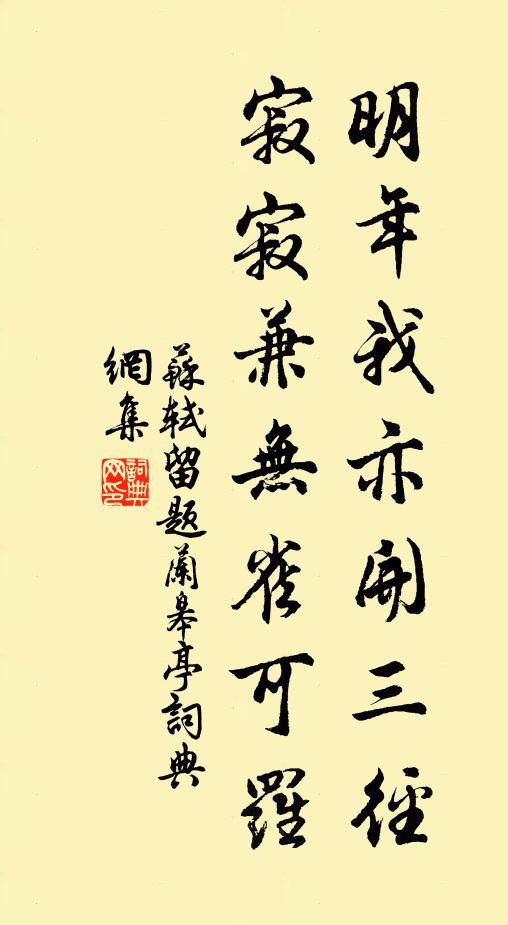 明年我亦開三徑
寂寂兼無雀可羅
蘇軾留題蘭皋亭詞典
網集
詞典網印